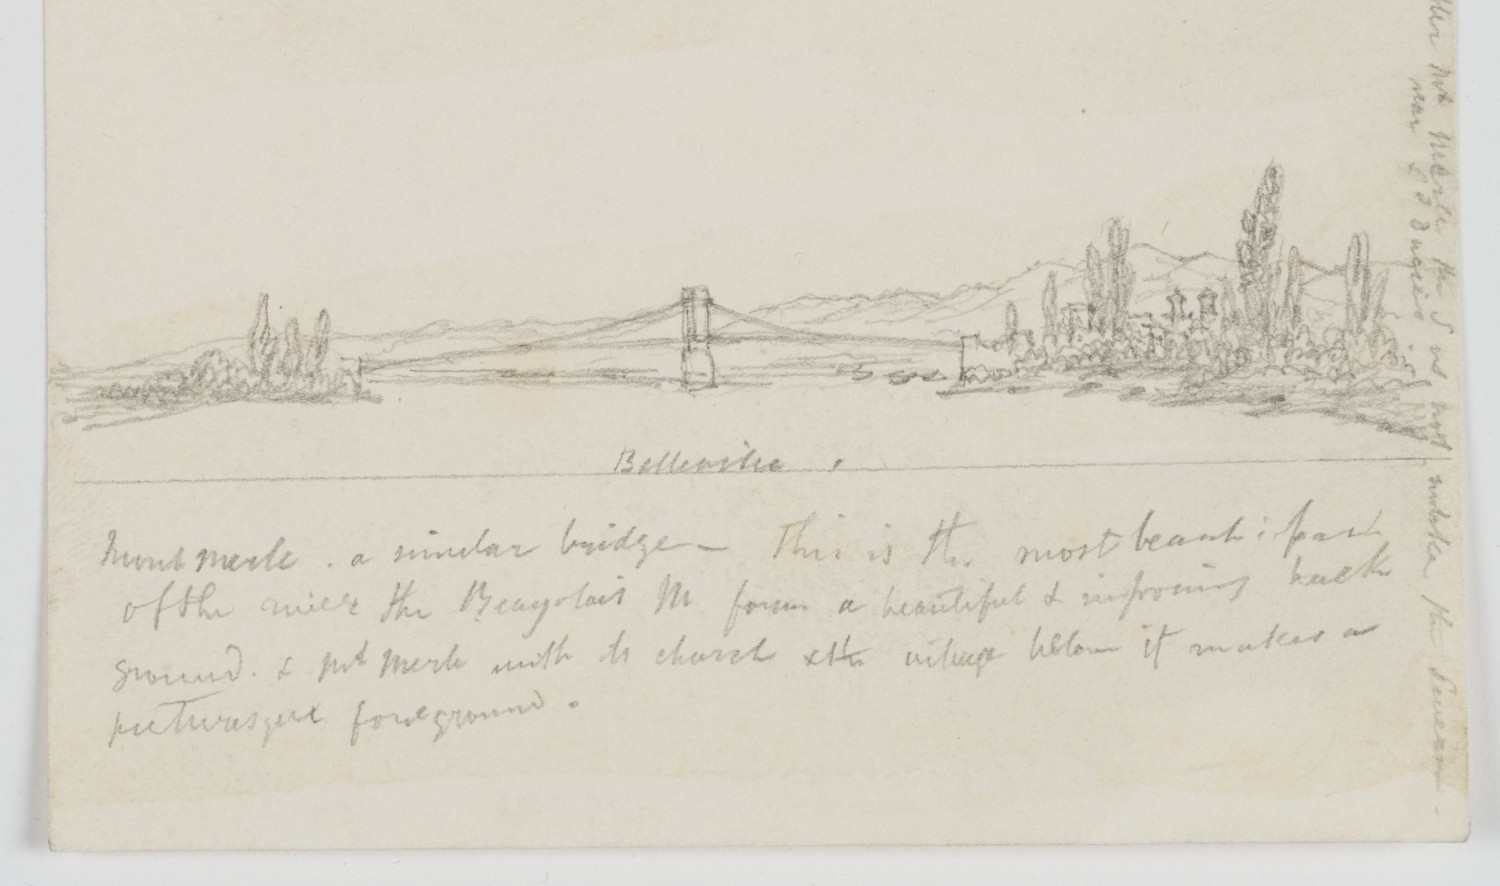 Belleville.
Mont Merle. a similar bridge — This is the most beautiful part
of the river the Beaujolais M form a beautiful & imposing back
ground. & Mt Merle with its church & the village below it makes a
picturesque foreground.
Mt Merle the S is not unlike the Severn.
near